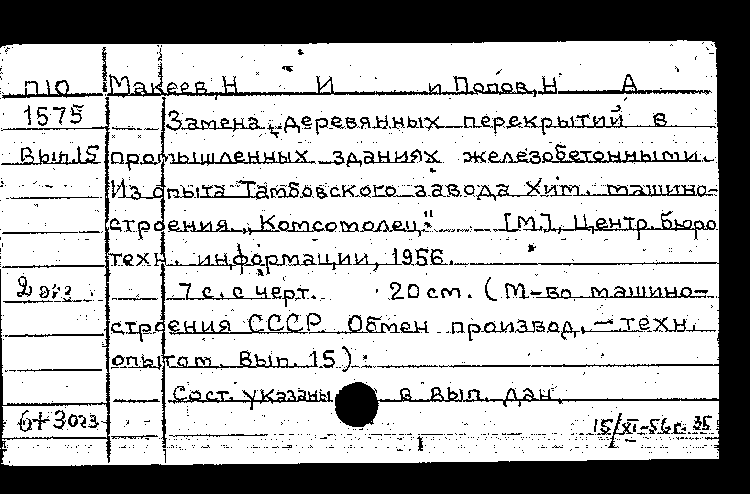 П10 Макеев, Н И и Попов, Н А
1575 Замена деревянных перекрытий в
Вып.15 промышленных зданиях железобетонными.
Из опыта Тамбовского завода Хим. машино-
строения „Комсомолец" [М.], Центр. бюро
техн. информации, 1956.
2 экз. 7 с. с черт. 20 см. (М-во машино-
строения СССР Обмен производ.-техн.
опытом. Вып. 15).
Сост. указаны в вып. дан.
15/XI-56г. 35